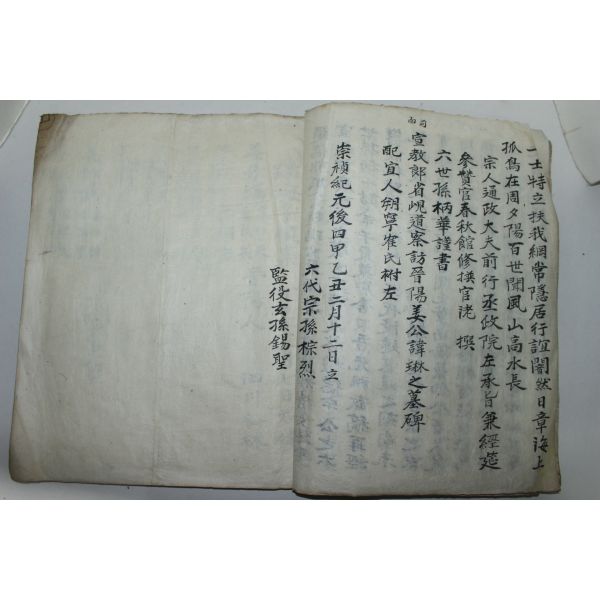 一士特立扶我綱常隱居行誼闇然日章海上
孤島在周夕陽百世聞風山高水長
宗人通政大夫前行承政院左承旨兼經筵
參贊官春秋館修撰官洸 撰
六世孫柄華謹書
前面
宣教郎省峴道察訪晉陽姜公諱琳之墓碑
配宜人朔寧崔氏祔左
崇禎紀元後四甲乙丑二月十二日立
六代宗孫棕烈
監役玄孫錫聖